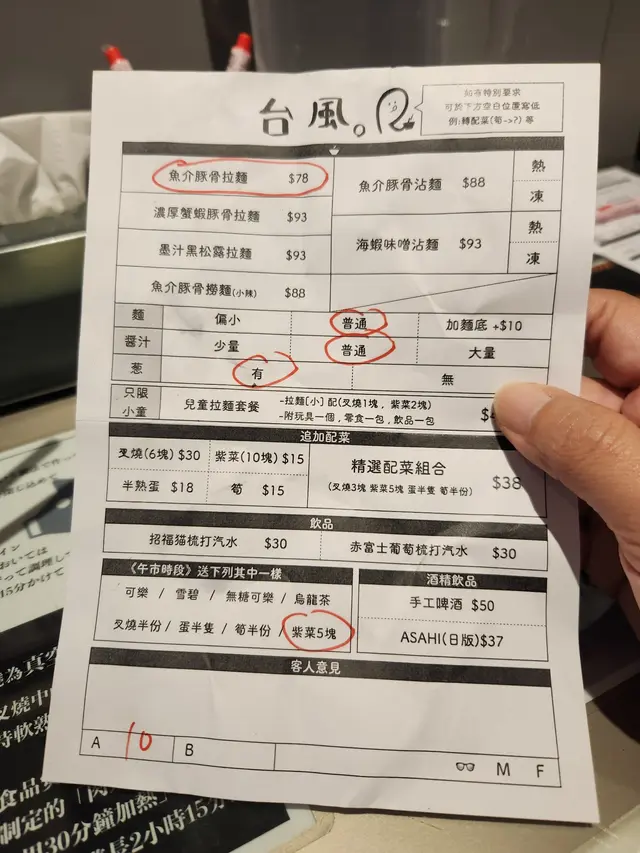 台風。
如有特別要求
可於下方空白位置寫低
例:轉配菜(筍->?) 等
魚介豚骨拉麵 $78
魚介豚骨沾麵 $88
熱
凍
濃厚蟹蝦豚骨拉麵 $93
墨汁黑松露拉麵 $93
海蝦味噌沾麵 $93
熱
凍
魚介豚骨撈麵(小辣) $88
麵 偏小 普通 加麵底 +$10
醬汁 少量 普通 大量
葱 有 無
只限
小童
兒童拉麵套餐
-拉麵[小] 配(叉燒1塊, 紫菜2塊)
-附玩具一個, 零食一包, 飲品一包
追加配菜
叉燒(6塊) $30 紫菜(10塊) $15
半熟蛋 $18 筍 $15
精選配菜組合
(叉燒3塊 紫菜5塊 蛋半隻 筍半份)
$38
飲品
招福猫梳打汽水 $30 赤富士葡萄梳打汽水 $30
《午市時段》送下列其中一樣
可樂 / 雪碧 / 無糖可樂 / 烏龍茶
叉燒半份 / 蛋半隻 / 筍半份 / 紫菜5塊
酒精飲品
手工啤酒 $50
ASAHI(日版)$37
客人意見
A 10 B M F
おいては
って調理し
15分かけて
食品
制定的「肉
用30分鐘加熱
2小時15分